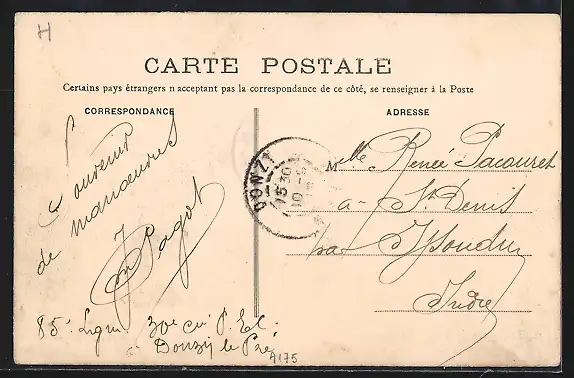 H
CARTE POSTALE
Certains pays étrangers n'acceptant pas la correspondance de ce côté, se renseigner à la Poste
CORRESPONDANCE
Souvenir
de manœuvres
Pagot
85e Ligne 30e Cie
Donzy le Pré
A175
DONZY
15 30
10 - 5
ADRESSE
Melle Renée Pacouret
à St Denis
par Issoudun
Indre